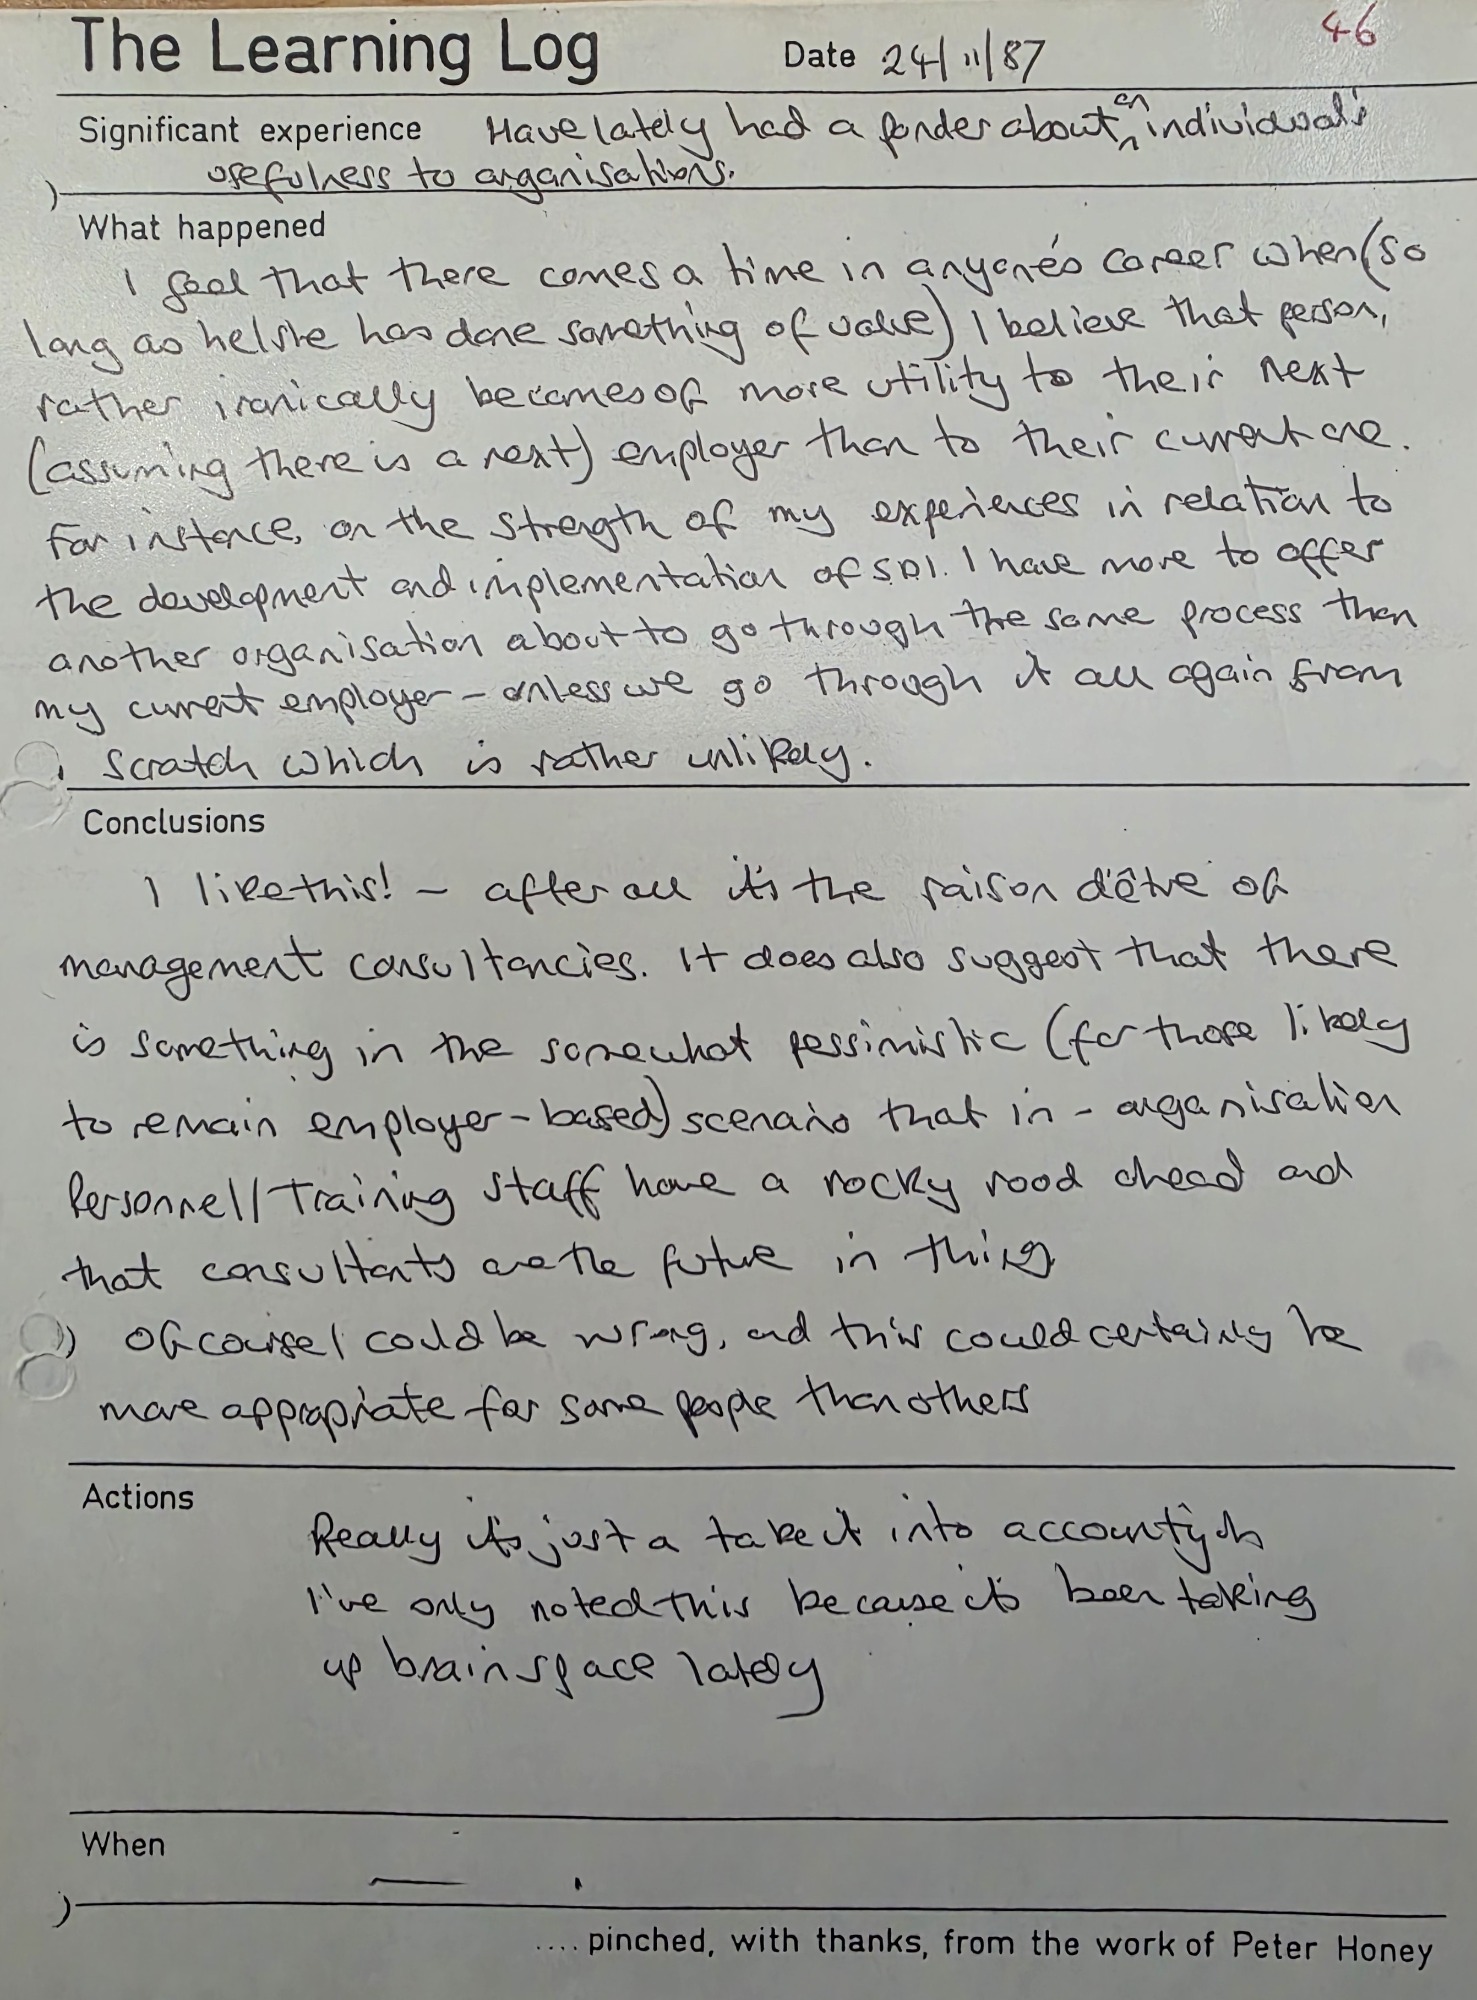 The Learning Log Date 24/11/87 46
Significant experience Have lately had a ponder about an individual's
usefulness to organisations.
What happened
I feel that there comes a time in anyone's career when (so
long as he/she has done something of value) I believe that person,
rather ironically becomes of more utility to their next
(assuming there is a next) employer than to their current one.
For instance, on the strength of my experiences in relation to
the development and implementation of S.D.I. I have more to offer
another organisation about to go through the same process than
my current employer - unless we go through it all again from
scratch which is rather unlikely.
Conclusions
I like this! - after all it's the raison d'être of
management consultancies. It does also suggest that there
is something in the somewhat pessimistic (for those likely
to remain employer-based) scenario that in-organisation
Personnel/Training staff have a rocky road ahead and
that consultants are the future in thing
Of course I could be wrong, and this could certainly be
more appropriate for some people than others
Actions
Really it's just a take it into account job
I've only noted this because it's been taking
up brain space lately
When
—
.... pinched, with thanks, from the work of Peter Honey